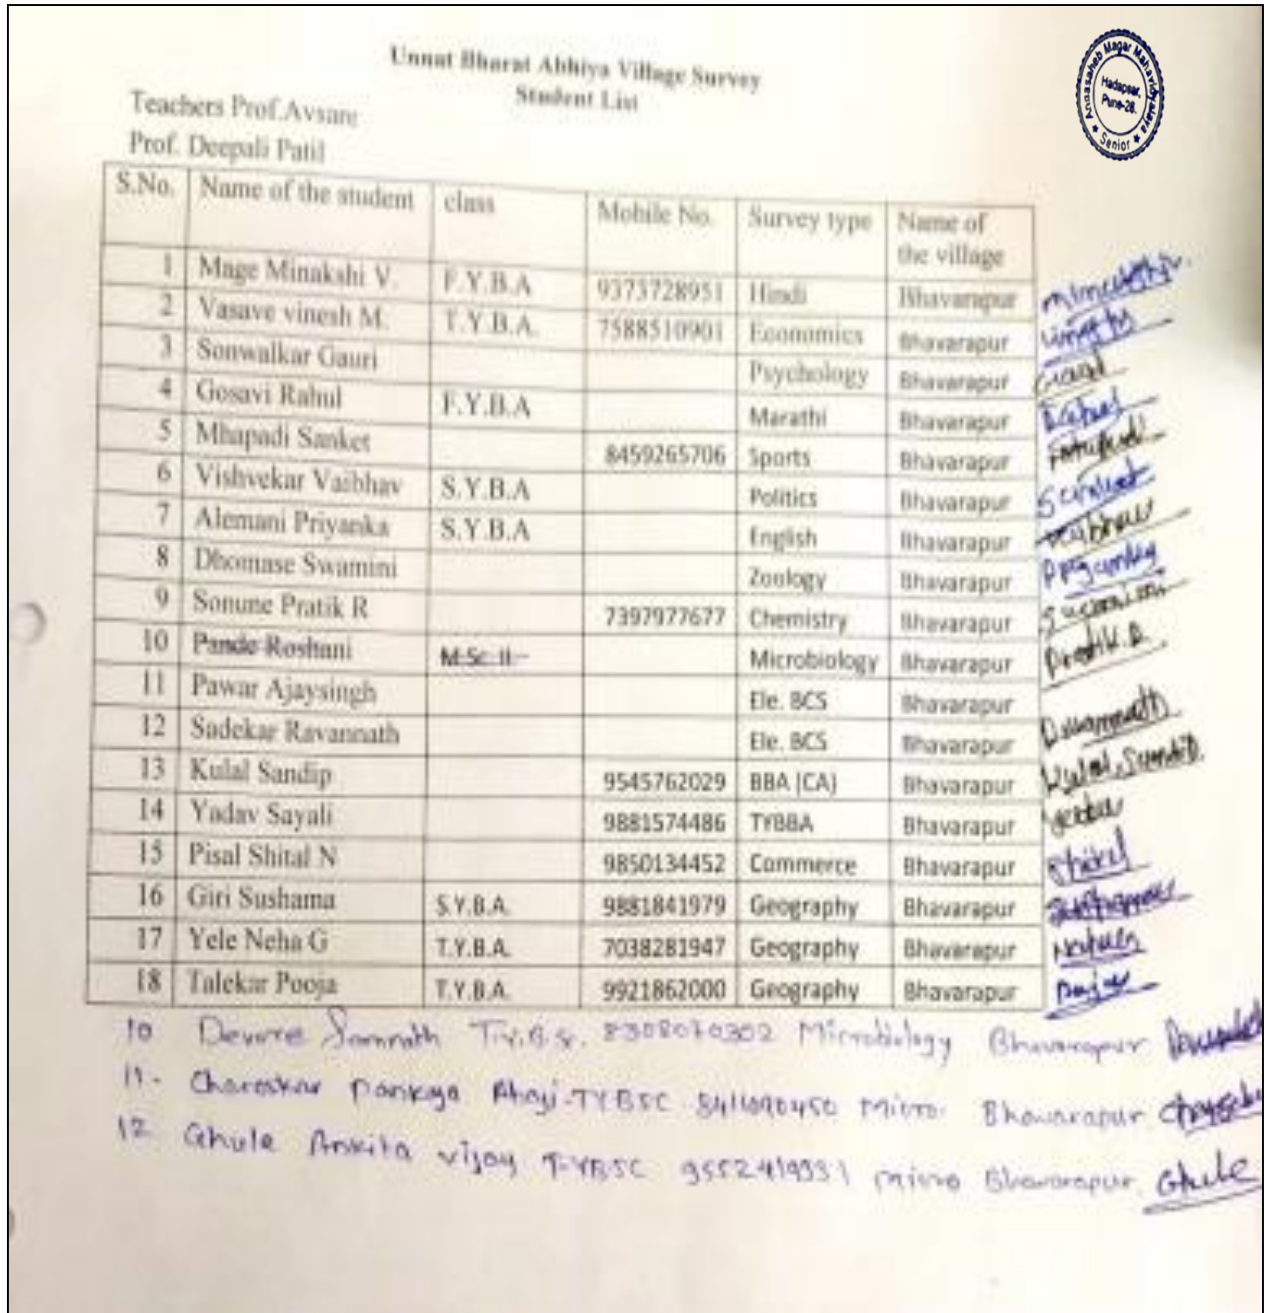 Unnat Bharat Abhiya Village Survey
Student List
Annasaheb Magar Mahavidyalaya
Hadapsar,
Pune-28.
★ Senior ★
Teachers Prof.Avsare
Prof. Deepali Patil
S.No. Name of the student class Mobile No. Survey type Name of the village
1 Mage Minakshi V. F.Y.B.A 9373728951 Hindi Bhavarapur
2 Vasave vinesh M. T.Y.B.A. 7588510901 Economics Bhavarapur
3 Sonwalkar Gauri Psychology Bhavarapur
4 Gosavi Rahul F.Y.B.A Marathi Bhavarapur Rahul
5 Mhapadi Sanket 8459265706 Sports Bhavarapur
6 Vishvekar Vaibhav S.Y.B.A Politics Bhavarapur
7 Alemani Priyanka S.Y.B.A English Bhavarapur
8 Dhomase Swamini Zoology Bhavarapur
9 Sonune Pratik R 7397977677 Chemistry Bhavarapur
10 Pande Roshani M.Sc. II Microbiology Bhavarapur
11 Pawar Ajaysingh Ele. BCS Bhavarapur
12 Sadekar Ravannath Ele. BCS Bhavarapur
13 Kulal Sandip 9545762029 BBA (CA) Bhavarapur
14 Yadav Sayali 9881574486 TYBBA Bhavarapur
15 Pisal Shital N 9850134452 Commerce Bhavarapur
16 Giri Sushama S.Y.B.A. 9881841979 Geography Bhavarapur
17 Yele Neha G T.Y.B.A. 7038281947 Geography Bhavarapur
18 Talekar Pooja T.Y.B.A. 9921862000 Geography Bhavarapur
10 Devore Somnath 8308070302 Microbiology Bhavarapur
11- Charoskar TYBSC Micro. Bhavarapur
12 Ghule Ankita vijay T-YBSC micro Bhavarapur Ghule